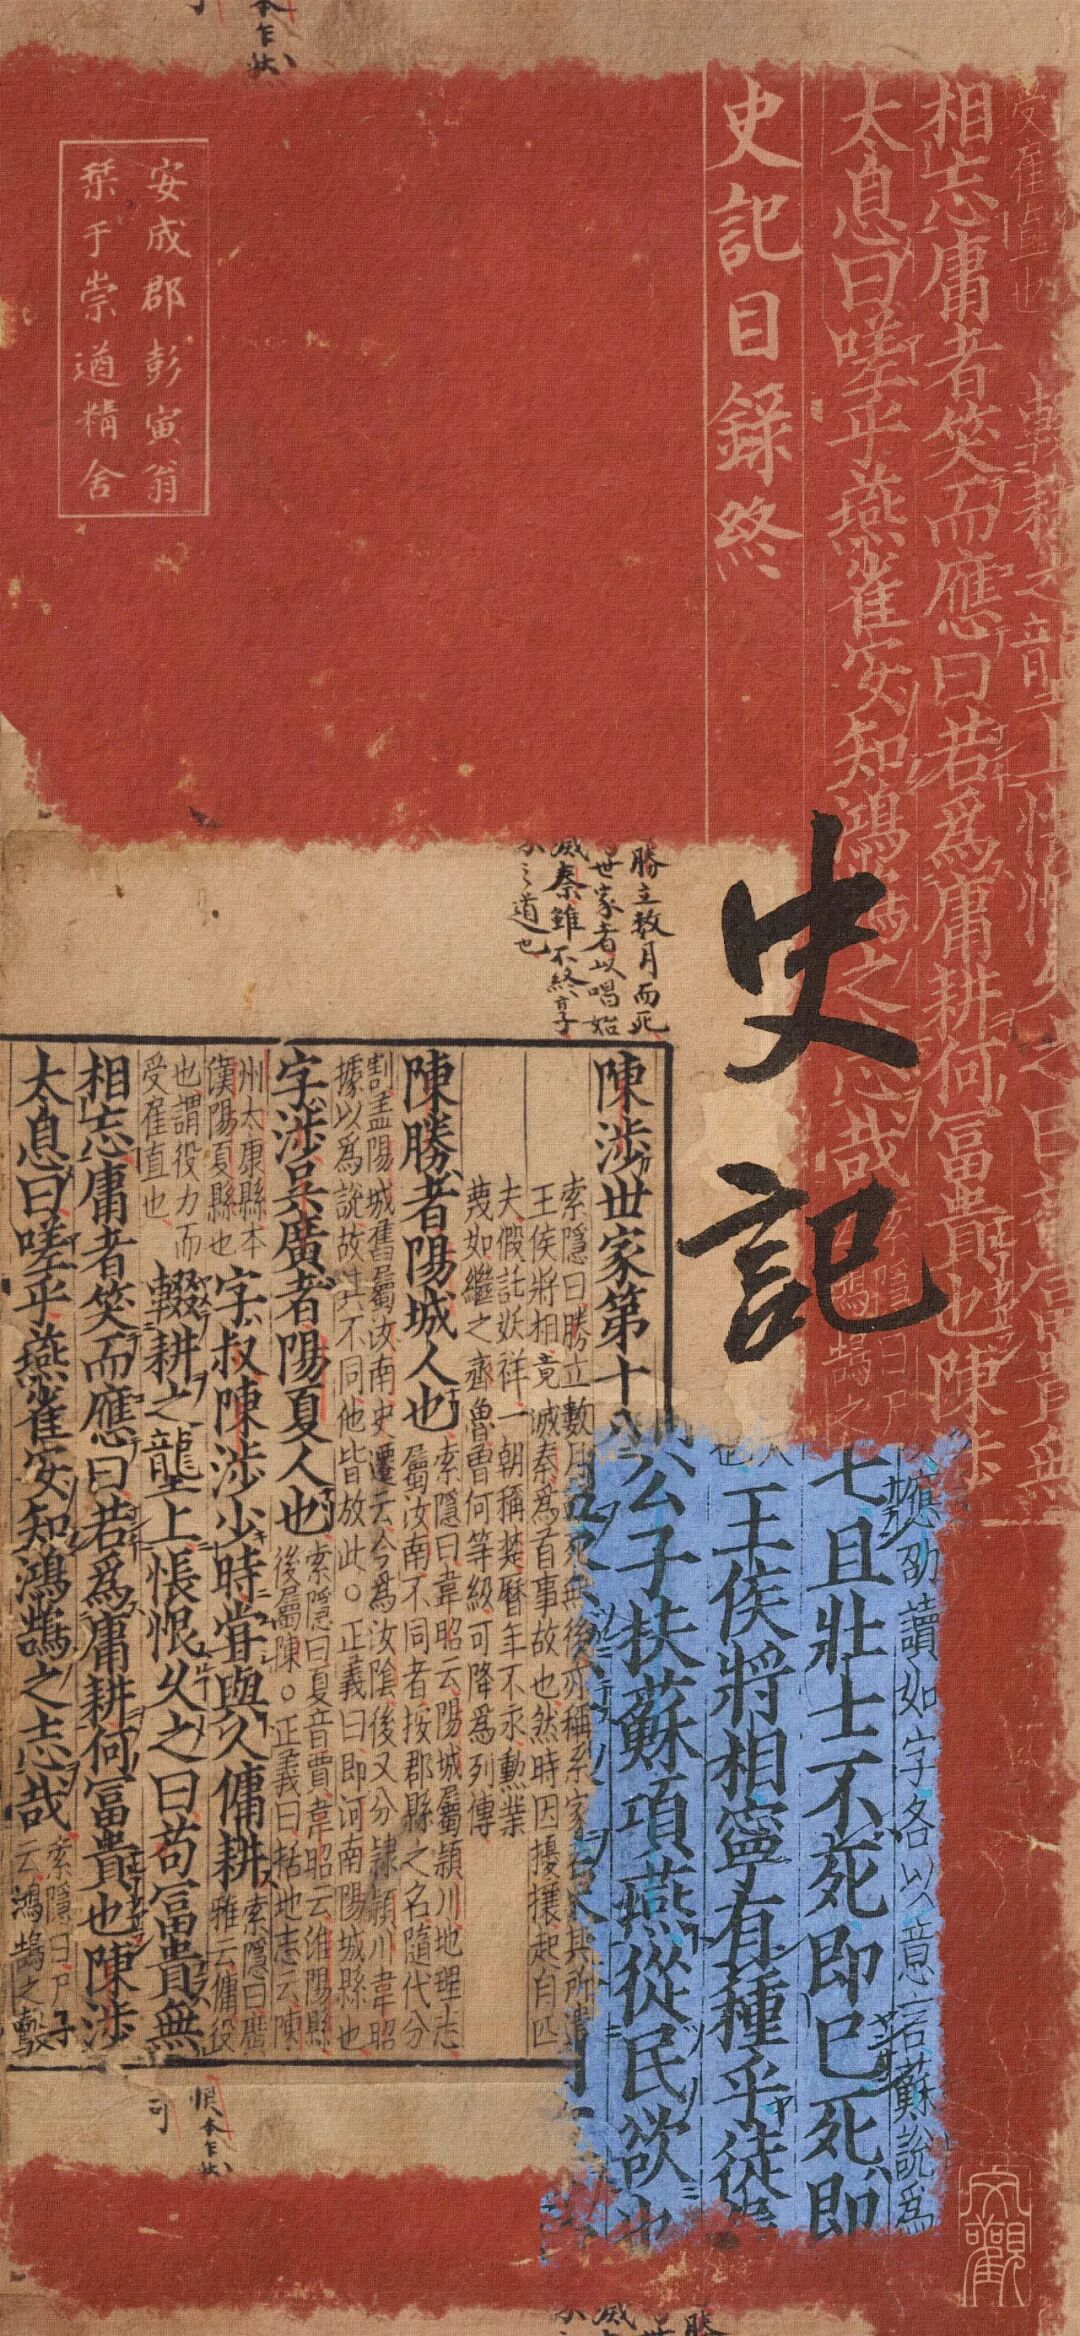 史記
史記目錄終
安成郡彭寅翁
栞于崇道精舍
相志庸者笑而應曰若爲庸耕何冨貴也陳涉
太息曰嗟乎燕雀安知鴻鵠之志哉
勝立数月而死
世家者以唱始
滅秦雖不終享
陳涉世家第十八
索隱曰勝立數月
夫假託妖祥一朝稱楚曆年不永勳業
蔑如繼之齊魯曾何等級可降爲列傳
陳勝者陽城人也
索隱曰韋昭云陽城屬潁川地理志
屬汝南不同者按郡縣之名隨代分
割盖陽城舊屬汝南史遷云今爲汝陰後又分隸潁川韋昭
據以爲說故其不同他皆放此○正義曰即河南陽城縣也
字涉吳廣者陽夏人也
索隱曰夏音賈韋昭云淮陽縣
後屬陳○正義曰括地志云陳
州太康縣本
漢陽夏縣也
字叔陳涉少時甞與人傭耕
索隱曰廣
雅云傭役
也謂役力而
受雇直也
輟耕之壟上悵恨久之曰苟冨貴無
相忘庸者笑而應曰若爲庸耕何冨貴也陳涉
太息曰嗟乎燕雀安知鴻鵠之志哉
索隱曰尸子
云鴻鵠之鷇
應劭讀如字各以意言蘇說爲
七且壯士不死即已死即
王侯將相寧有種乎徒
公子扶蘇項燕從民欲也